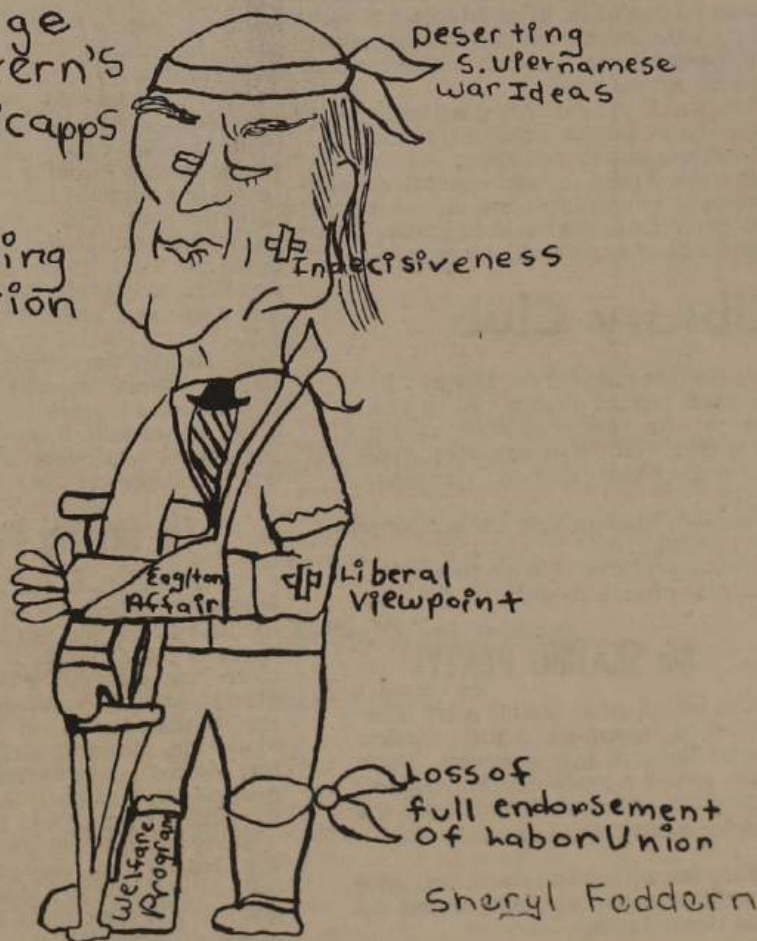 ge
ern's
capps
ing
tion
Deserting
S. Vietnamese
War Ideas
Indecisiveness
Eaglton
Affair
Liberal
Viewpoint
Loss of
full endorsement
of Labor Union
Welfare
Program
Sheryl Feddern